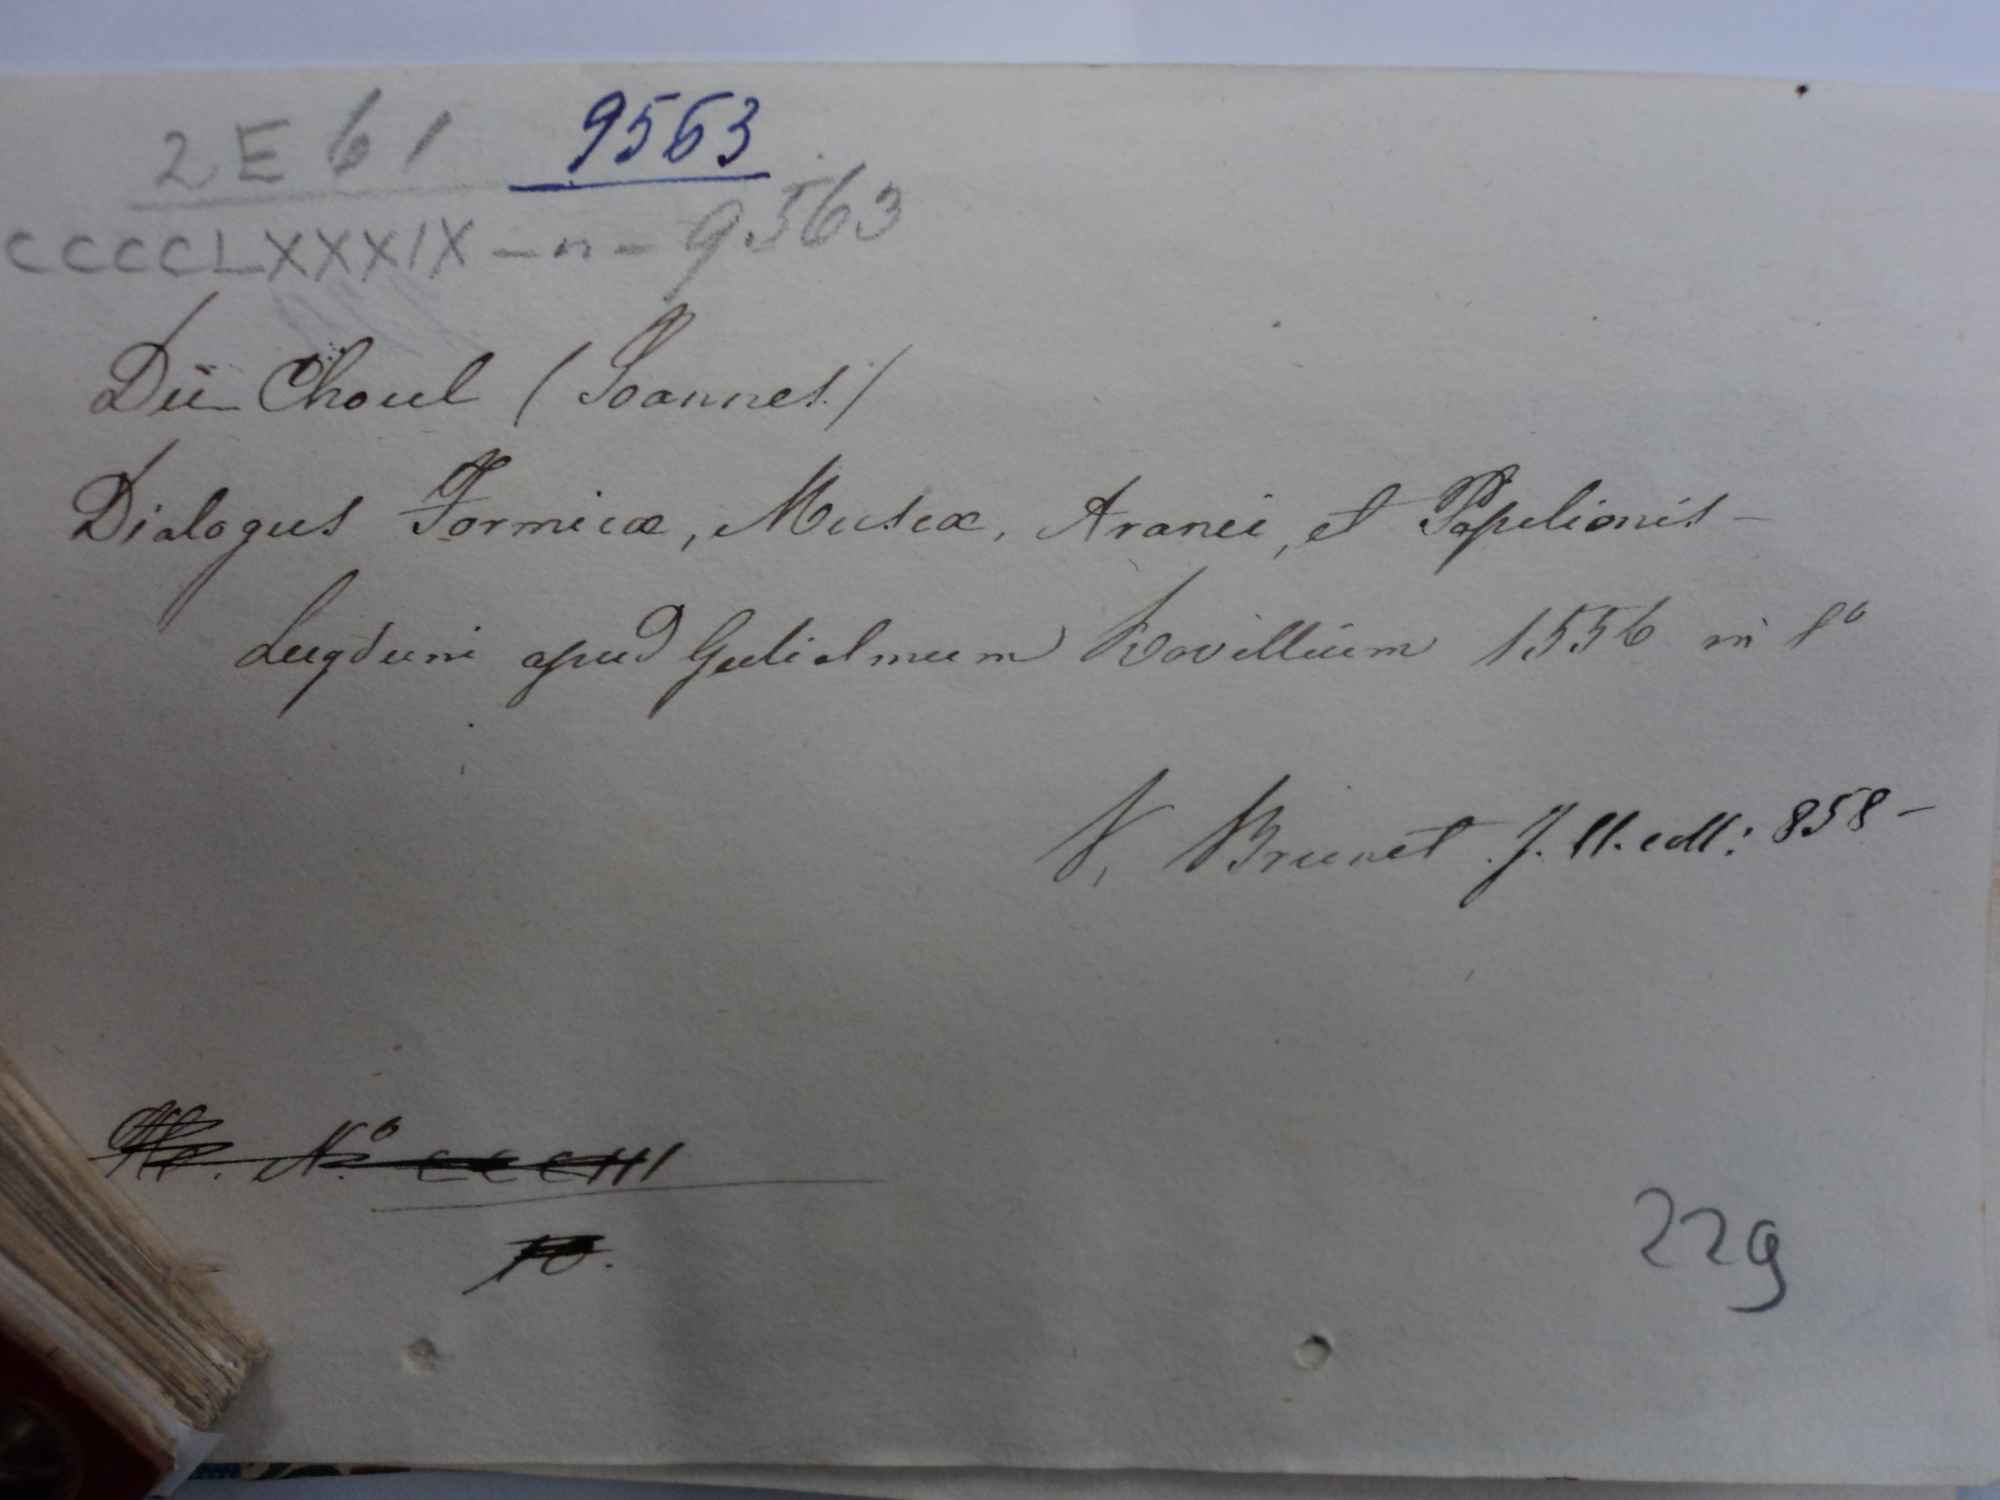 2 E 61 9563
CCCCLXXXIX - n - 9563
Du Choul (Joannes)
Dialogus Formicæ, Muscæ, Aranei, et Papilionis -
Lugduni apud Gulielmum Rovillium 1556 in 8º
V. Brunet J. II. coll: 858 -
Nº CCCIII
22g